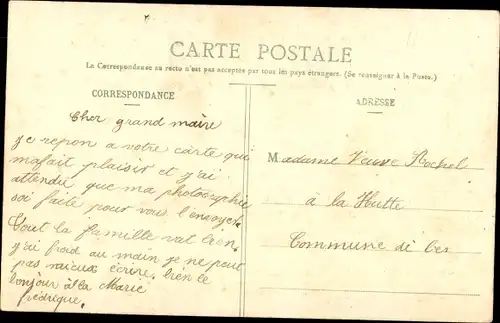 CARTE POSTALE
La Correspondance au recto n'est pas acceptée par tous les pays étrangers. (Se renseigner à la Poste.)
CORRESPONDANCE
Cher grand maire
je repon a votre carte qui
mafait plaisir et j'ai
attendue que ma photographie
soi faite pour vous l'envoyer.
Tout la famille vat bien,
j'ai froid au main je ne peut
pas mieux écrire. bien le
bonjour à la Marie
fredrique.
ADRESSE
Madame Veuve Rochel
à la Hutte
Commune di